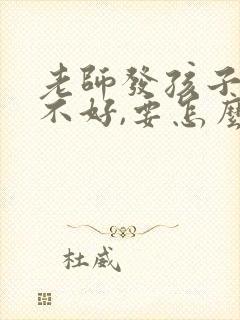 老師發孩子
不好,要怎麼
杜威